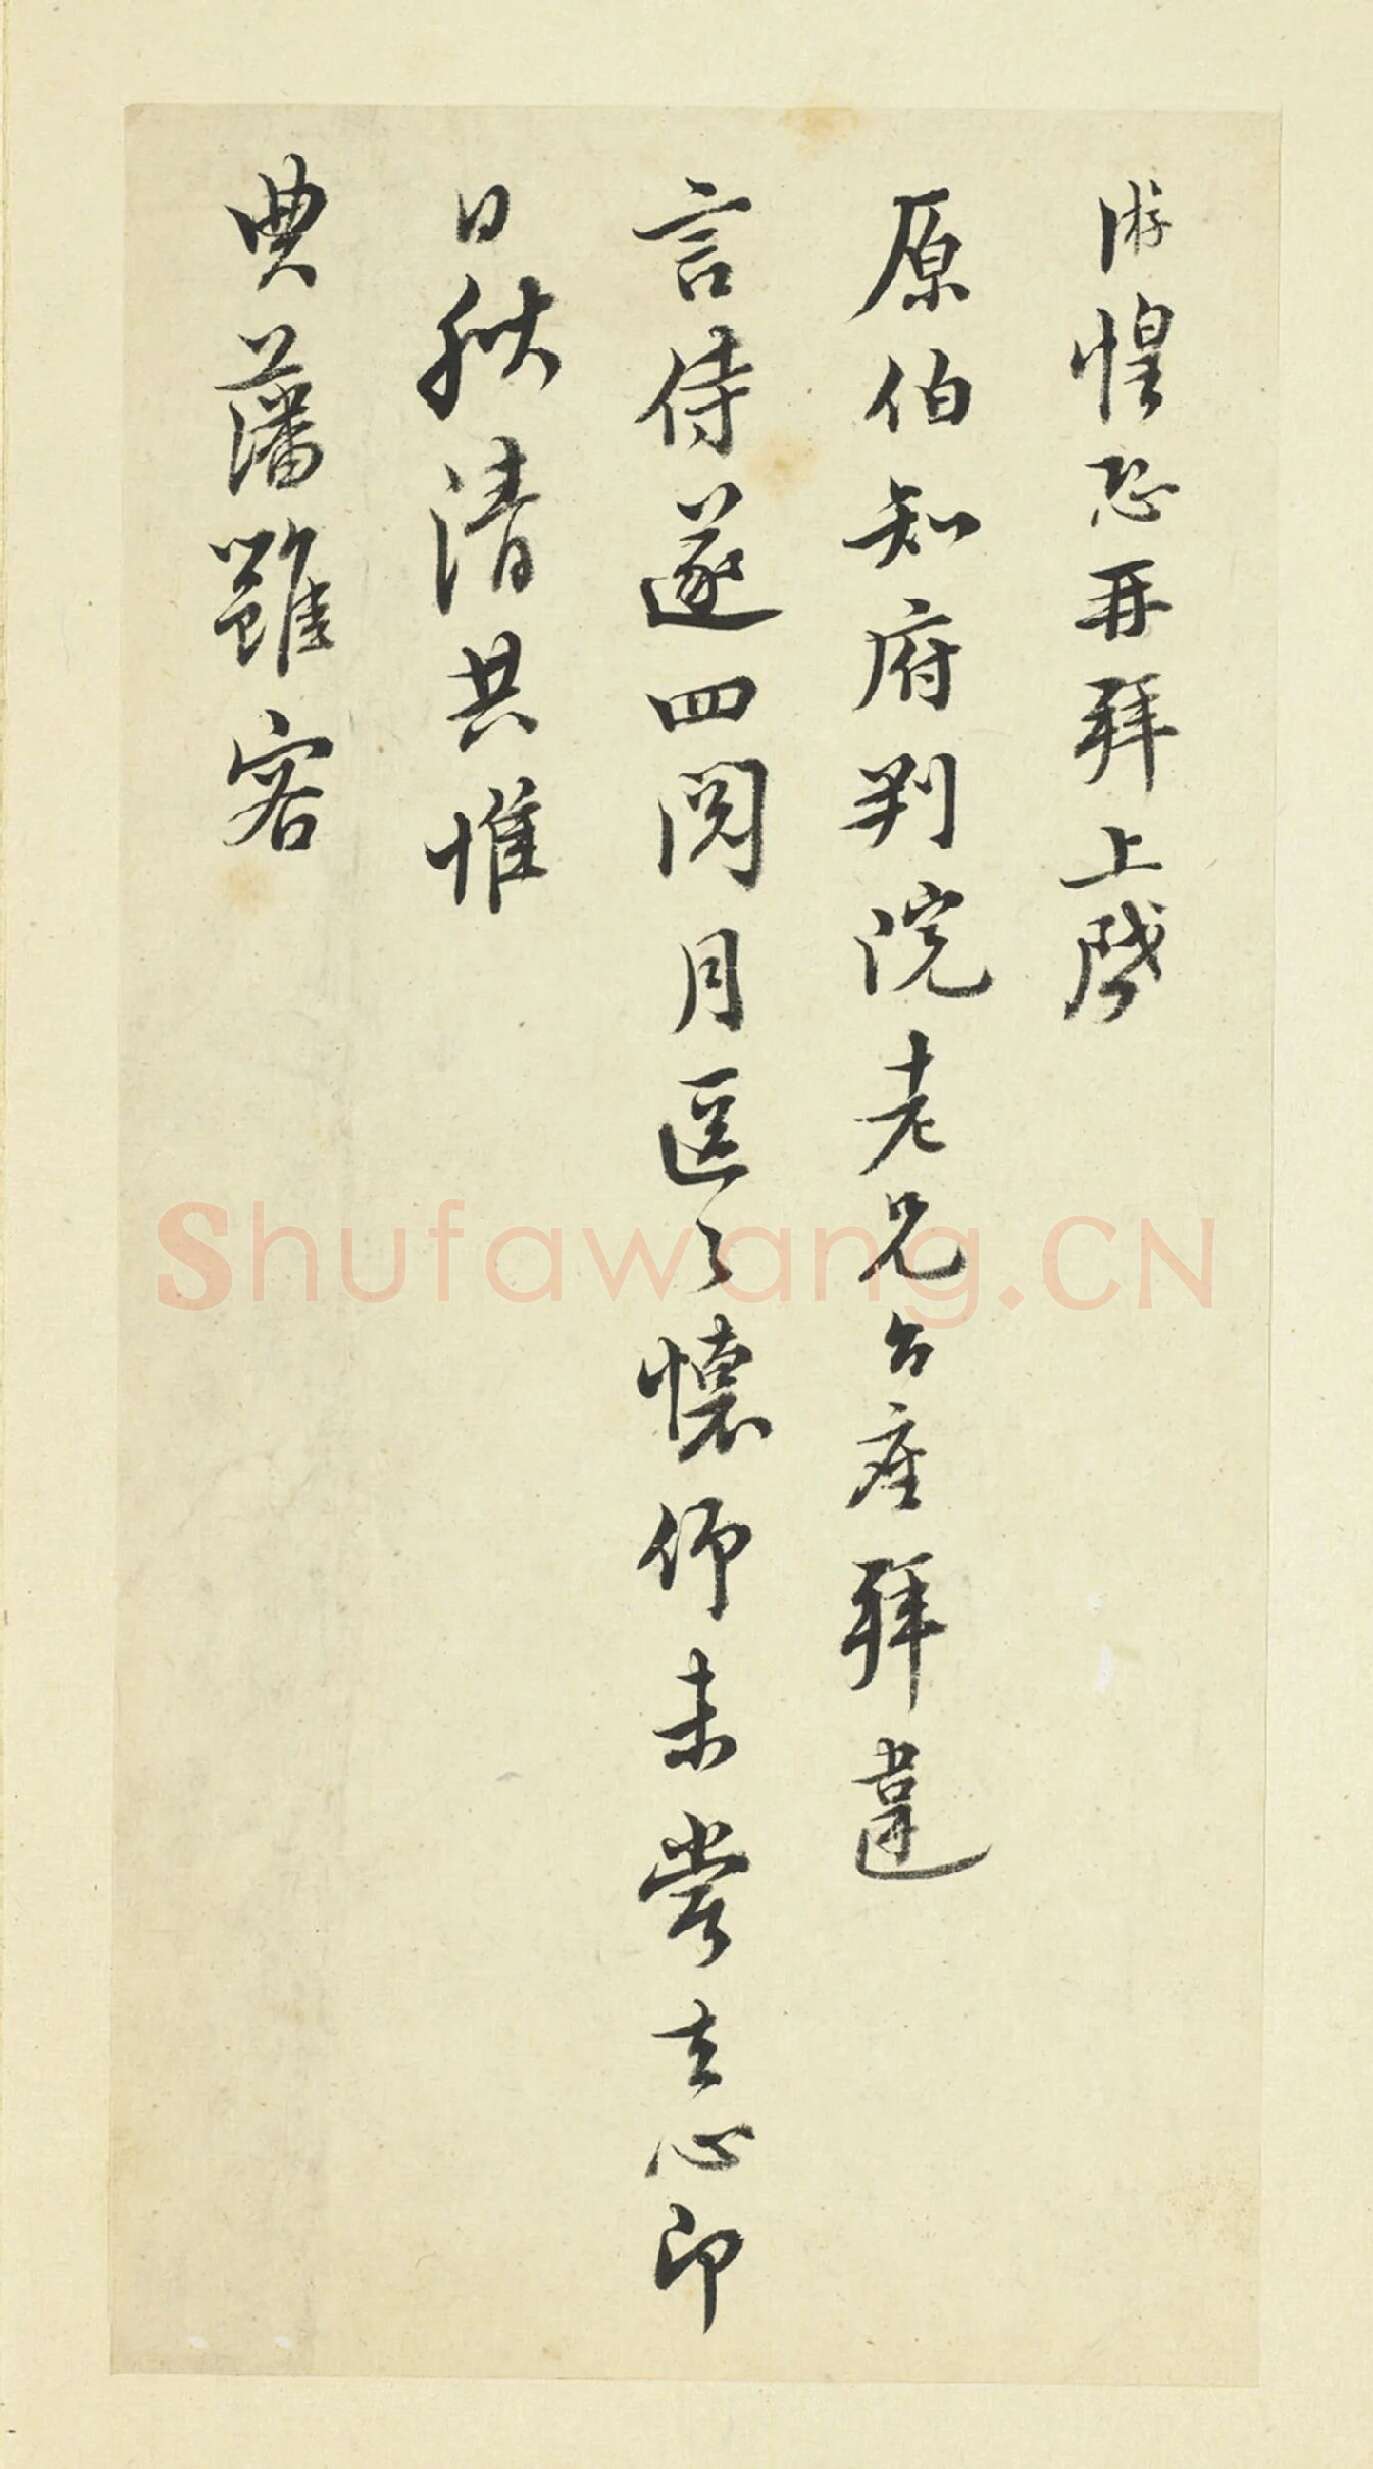 游惶恐再拜上啓
原伯知府判院老兄台座拜違
言侍遂四閱月區々懷仰未嘗去心即
日秋清共惟
典藩雖容
Shufawang.CN